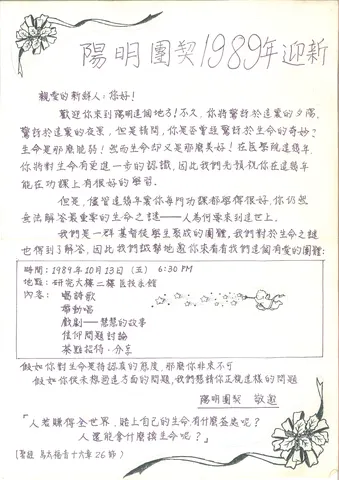 陽明團契1989年迎新
親愛的新鮮人：您好！
歡迎你來到陽明這個地方！不久，你將驚訝於這裏的夕陽，
驚訝於這裏的夜景，但是請問，你是否曾經驚訝於生命的奇妙？
生命是那麼脆弱！然而生命却又是那麼美好！在医學院這幾年，
你將對生命有更進一步的認識，因此我們先預祝你在這幾年
能在功課上有很好的學習。
但是，儘管這幾年裏你每門功課都學得很好，你仍然
無法解答最重要的生命之謎——人為何要來到這世上。
我們是一群基督徒學生聚成的團體，我們對於生命之謎
也得到了解答，因此我們誠摯地邀你來看看我們這個有愛的團體：
時間：1989年10月13日（五） 6:30 PM
地點：研究大樓二樓 医技系館
內容：唱詩歌
帶動唱
戲劇——慧慧的故事
信仰問題討論
茶點招待、分享
假如你對生命是持認真的態度，那麼你非來不可
假如你從未想過這方面的問題，我們懇請你正視這樣的問題
陽明團契 敬邀
「人若賺得全世界，賠上自己的生命有什麼益處呢？
人還能拿什麼換生命呢？」
（聖經 馬太福音十六章26節）